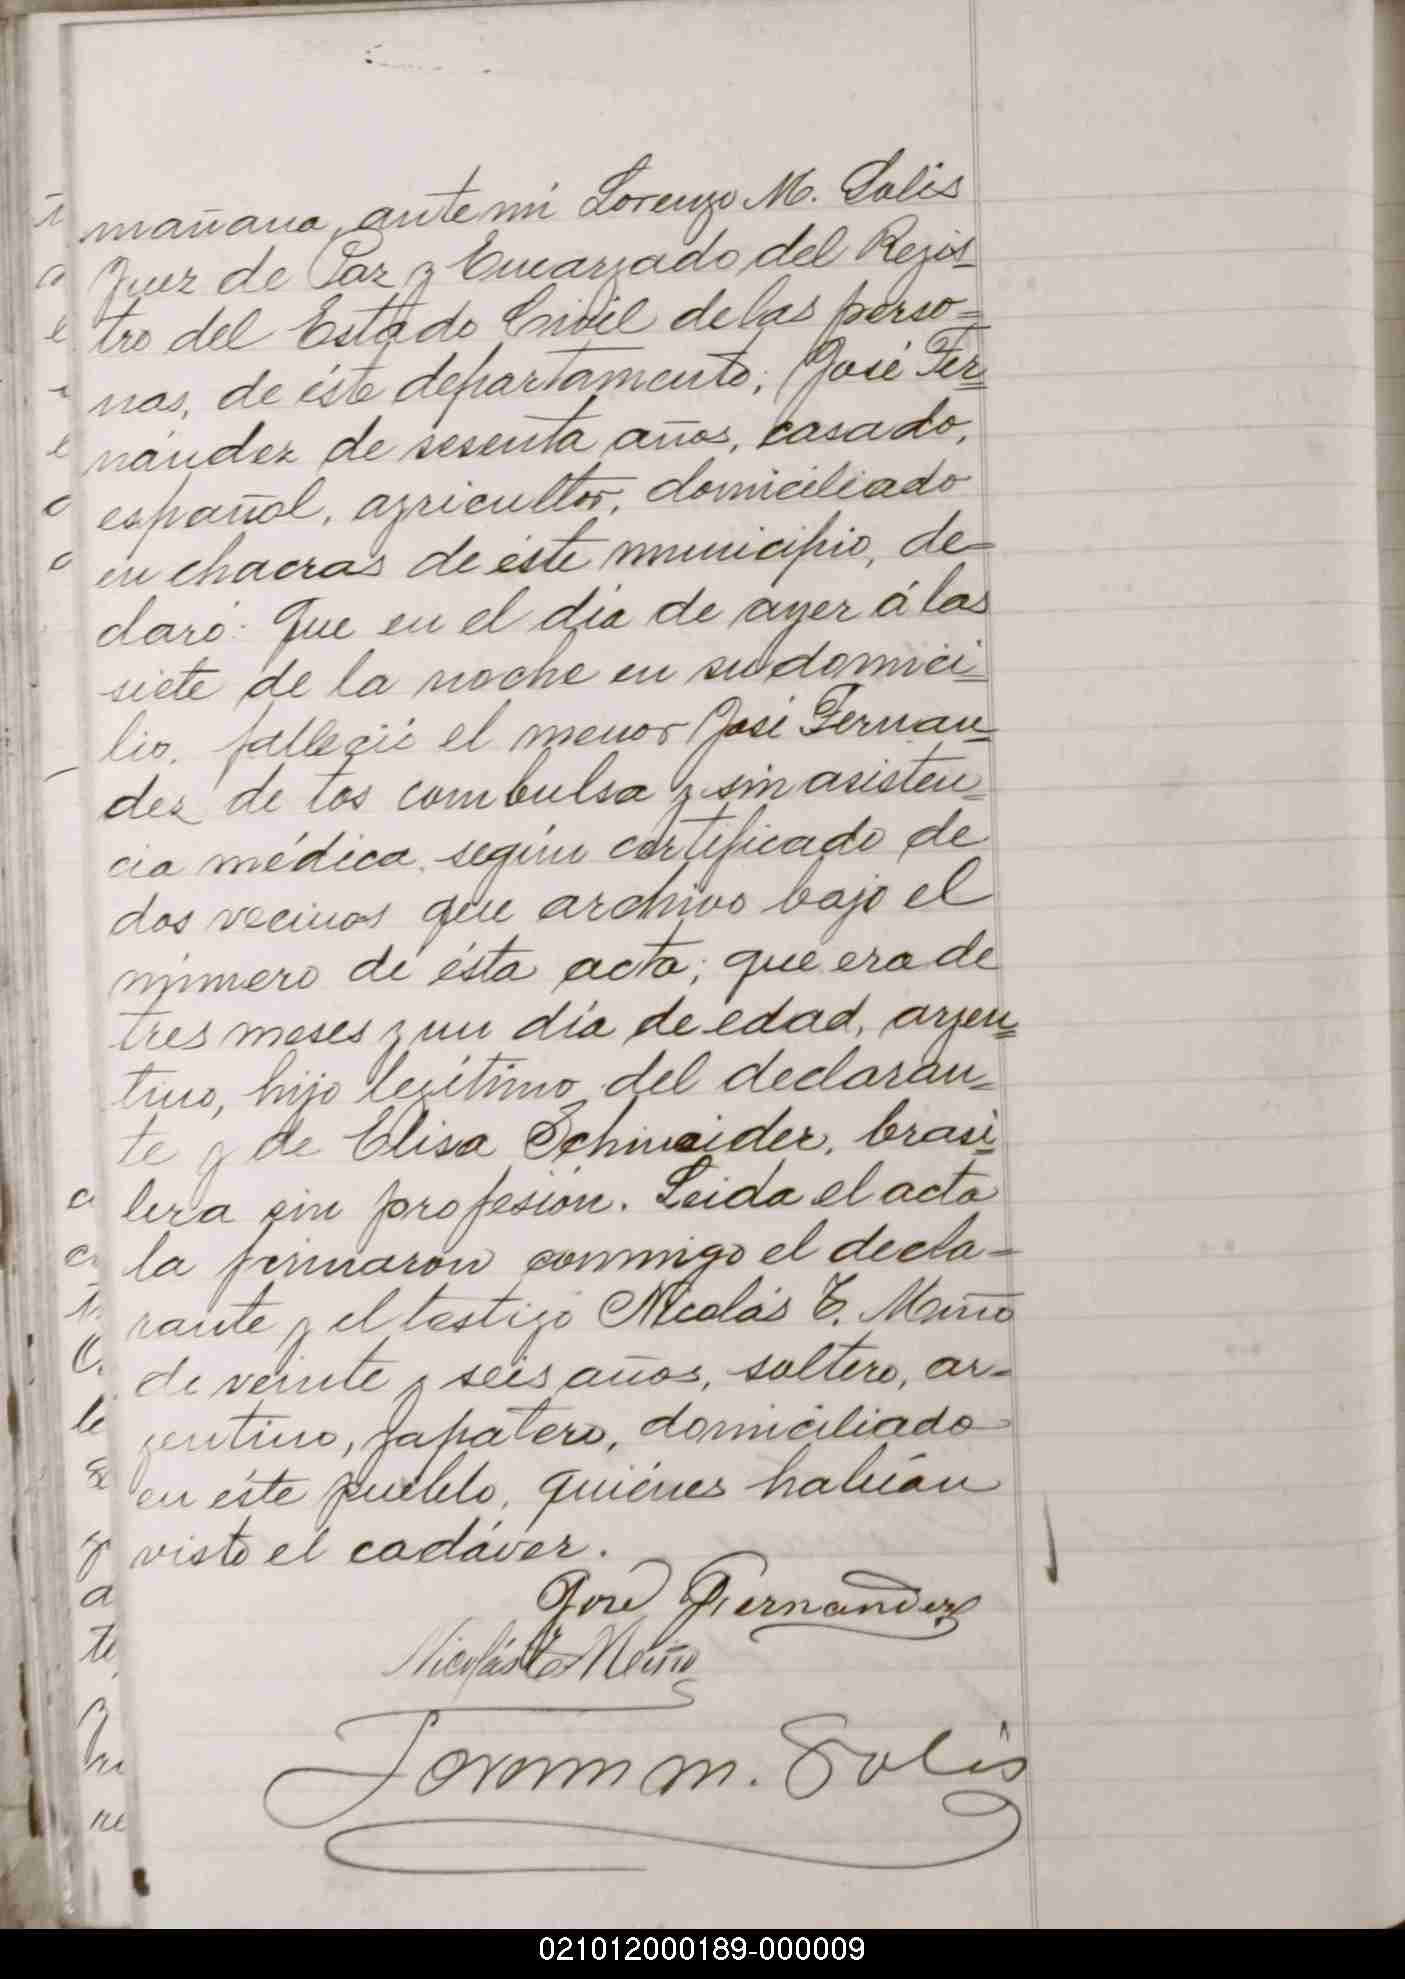 mañana, ante mi Lorenzo M. Solis
Juez de Paz y Encargado del Rejis_
tro del Estado Civil de las perso=
nas, de éste departamento; José Fer=
nández de sesenta años, casado,
español, agricultor, domiciliado
en chacras de éste municipio, de=
claró: Que en el día de ayer á las
siete de la noche en su domici=
lio, falleció el menor José Fernan=
dez de tos combulsa y sin asisten=
cia médica, según certificado de
dos vecinos que archivo bajo el
número de ésta acta; que era de
tres meses y un día de edad, arjen=
tino, hijo lejítimo del declaran=
te y de Elisa Schneider, brasi=
lera sin profesión. Leida el acta
la firmaron conmigo el decla=
rante y el testigo Nicolás E. Meniño
de veinte y seis años, soltero, ar=
gentino, zapatero, domiciliado
en éste pueblo, quiénes habían
visto el cadáver.
José Fernandez
Nicolás
Lorenzo M. Solis
021012000189-000009